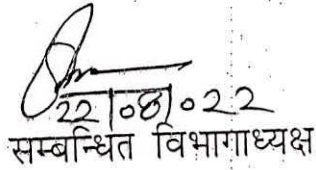 22/08/022
सम्बन्धित विभागाध्यक्ष